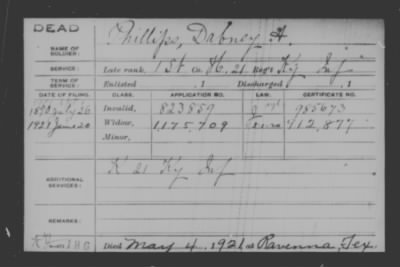 DEAD
Phillips, Dabney H.
NAME OF SOLDIER:
SERVICE: Late rank, 1 St. Co. H. 21 Reg't Ky Inf
TERM OF SERVICE: Enlisted , 1 Discharged , 1
DATE OF FILING. CLASS. APPLICATION NO. LAW. CERTIFICATE NO.
1890 July 26 Invalid, 823859 985673
1921 June 20 Widow, 1,175,709 912,877
Minor,
ADDITIONAL SERVICES: K 21 Ky Inf
REMARKS:
Died May 4, 1921, at Ravenna, Tex.